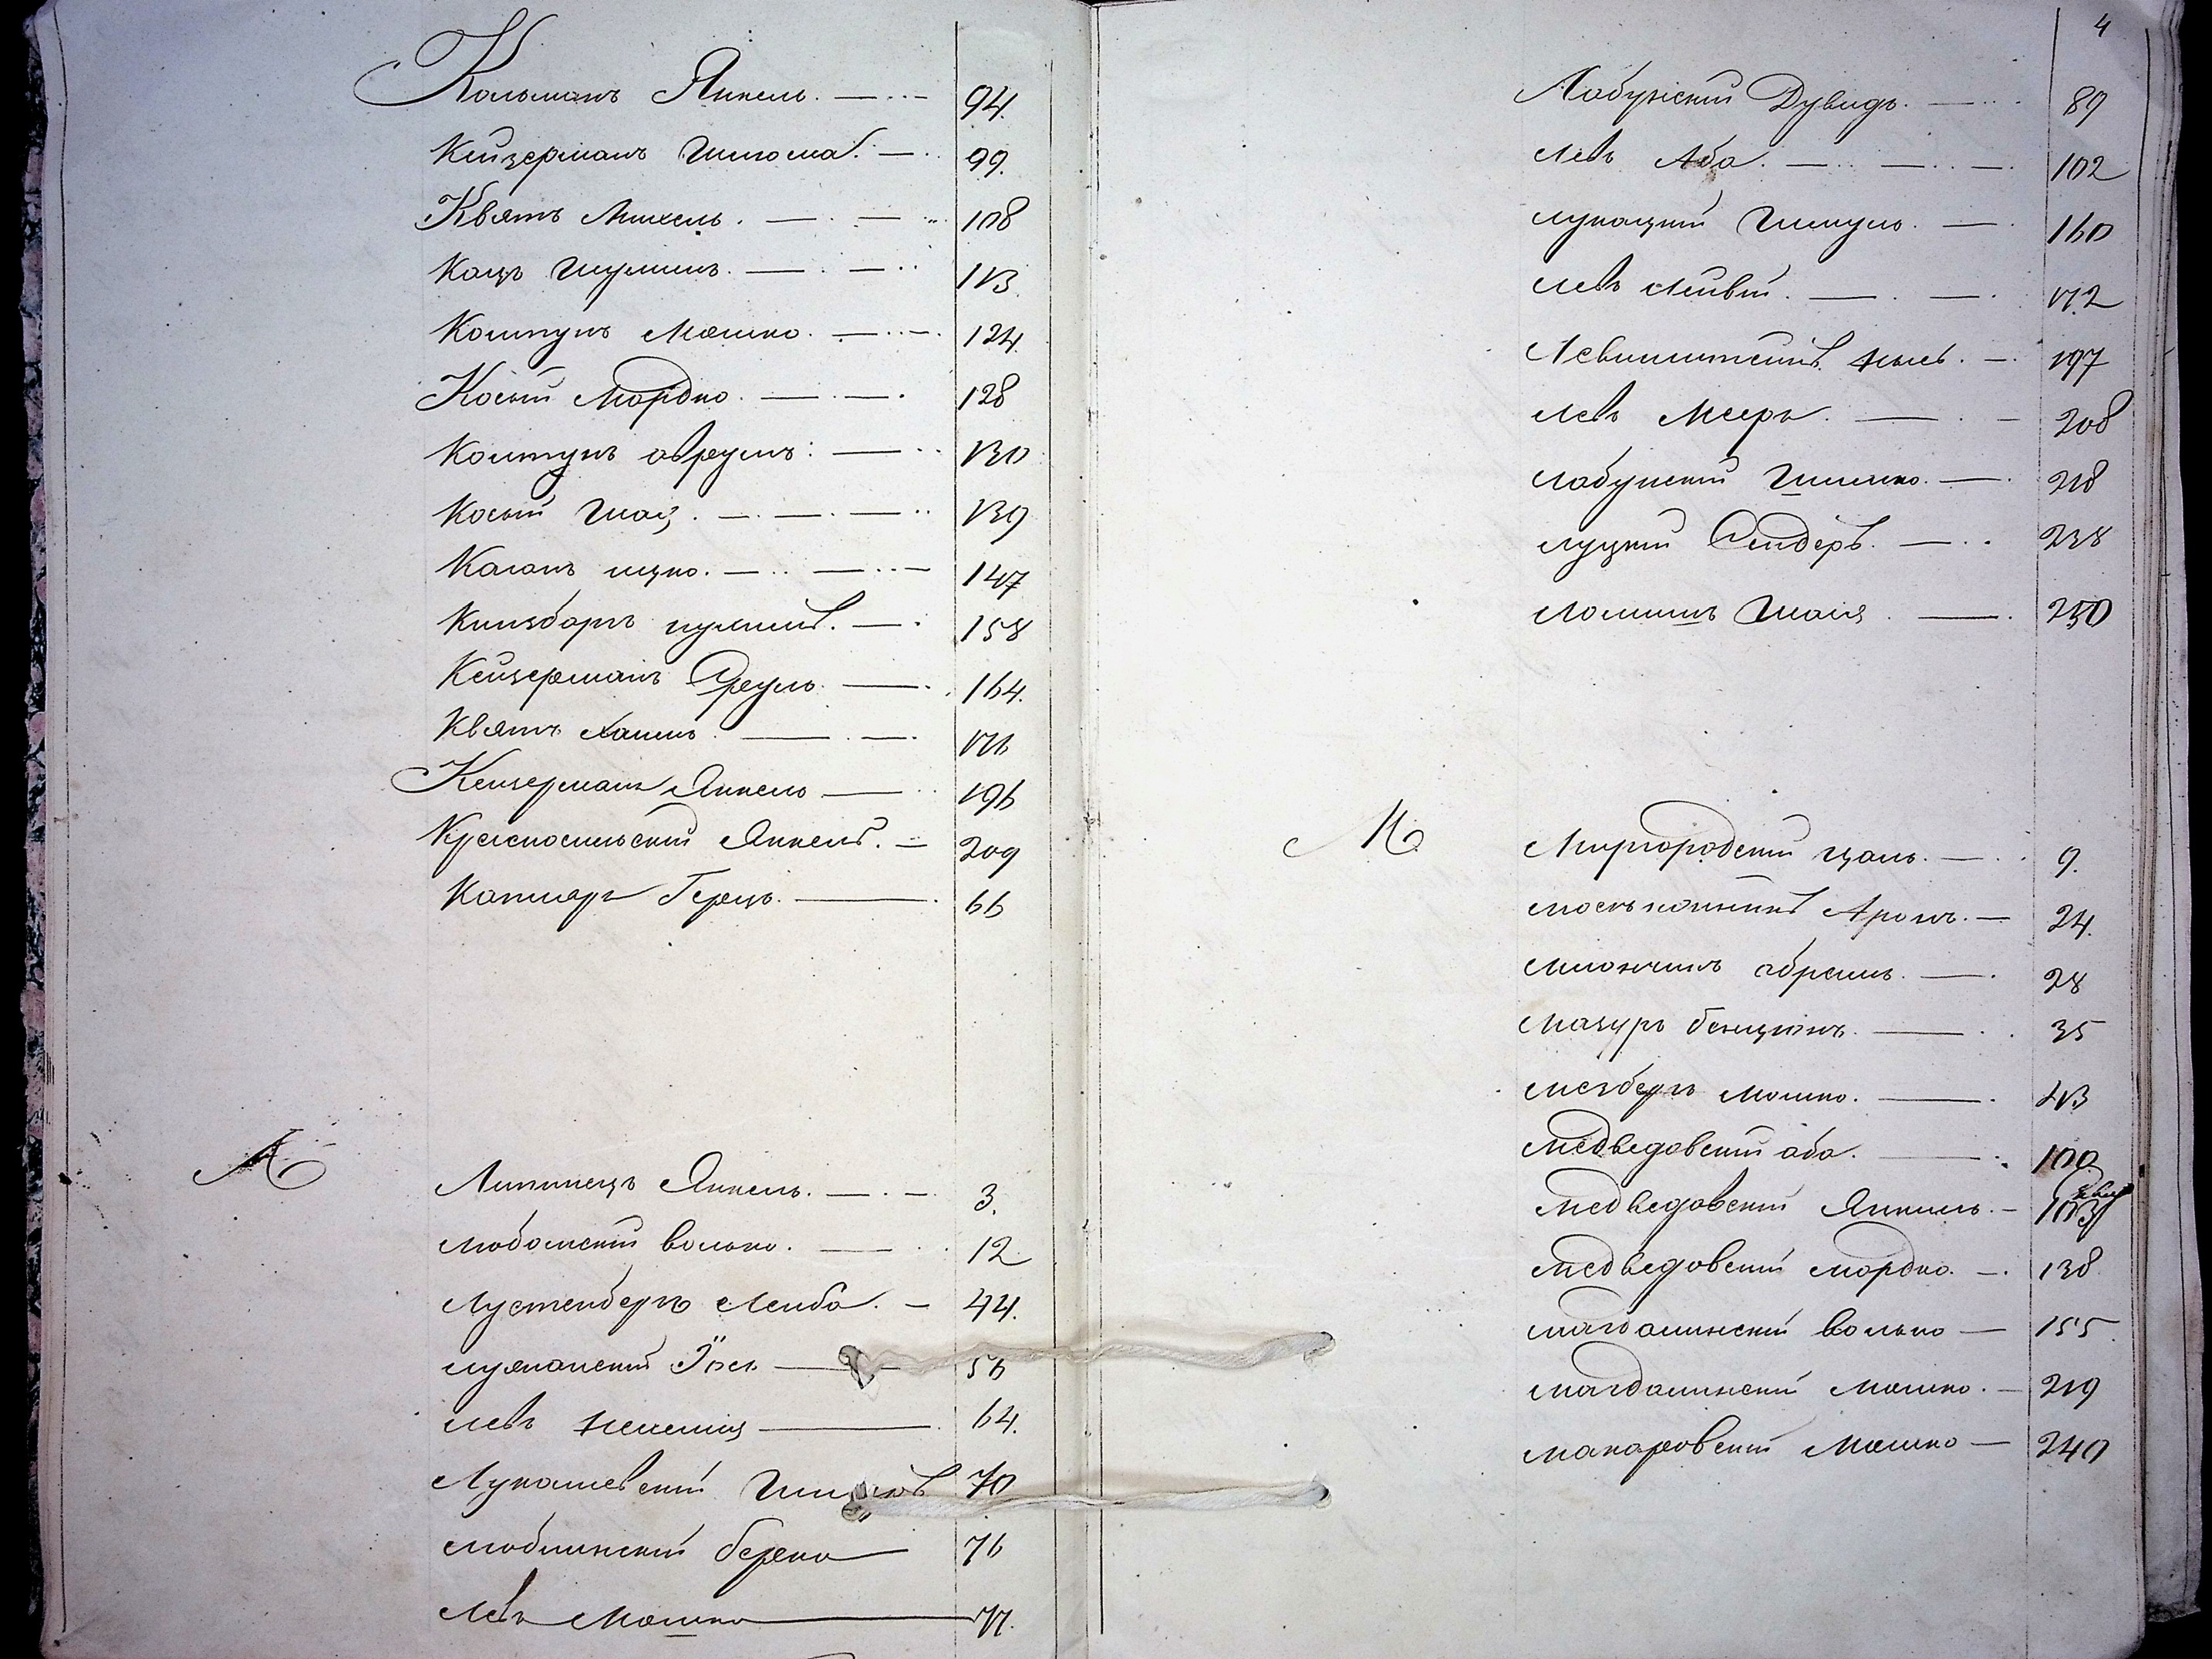 Кальманъ Янкель. 94.
Кейзерманъ Шлема. 99.
Квятъ Михель. 108
Кацъ Шулимъ. 113.
Колтунъ Мошко. 124.
Косый Мордко. 128
Колтунъ аврумъ: 130
Косый Шая. 139
Каганъ ицко. 147
Кинзбаръ шулимъ. 158
Кейзерманъ Сруль. 164.
Квятъ Хаимъ. 176
Кейзерманъ Янкель 196
Красносельский Янкель. 209
Котляръ Герцъ. 66
Л
Липинецъ Янкель. 3.
любомский волько. 12
Лустенбергъ Лейба. 44.
лукомский Iось 56
левъ нехемия 64.
Лукашевский 70
люблинский берко 76
Левъ Мошко 77.
4
Лабунский Дувидъ. 89
Левъ Аба. 102
лукацкий Шмуль. 160
левъ Лейви. 172
197
левъ Мееръ. 208
лабунский Шлемко. 218
луцкий Сендеръ. 238
Шаия 250
М
Миргородский цаль. 9.
Аронъ. 24.
абрамъ. 28
Мазуръ бенционъ. 35
мезбергъ мошко. 43
медведовский аба. 100.
медведовский Янкель. 103
медведовский мордко. 138
магдалинский волько 155
магдалинский мошко. 219
макаровский Мошко 240